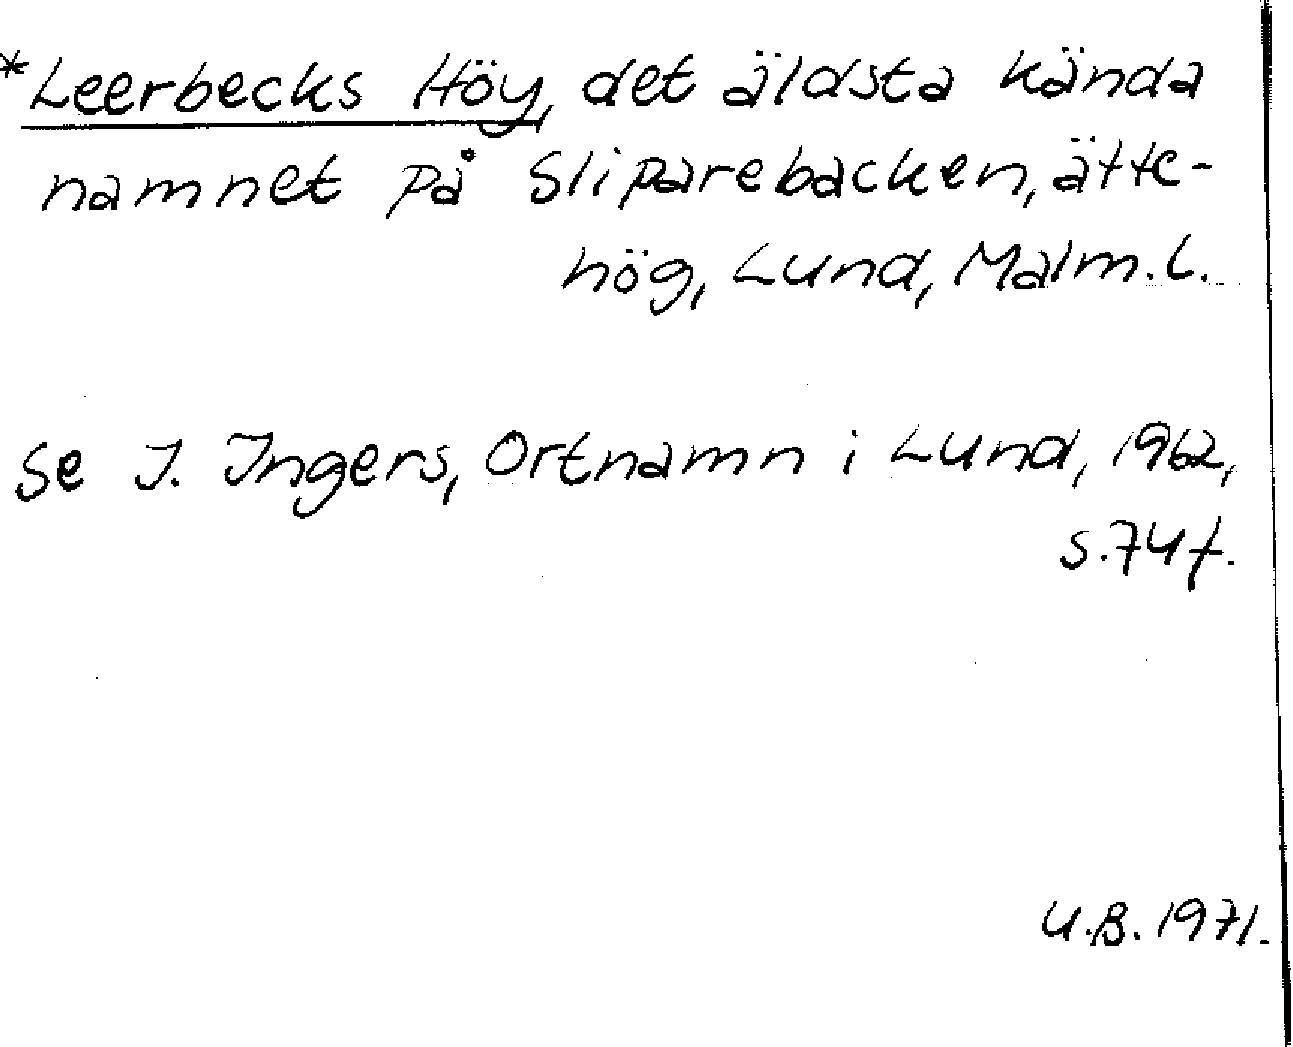 *Leerbecks Höy, det äldsta kända
namnet på Sliparebacken, ätte-
hög, Lund, Malm.l.
Se I. Ingers, Ortnamn i Lund, 1962,
s.74f.
U.B. 1971.